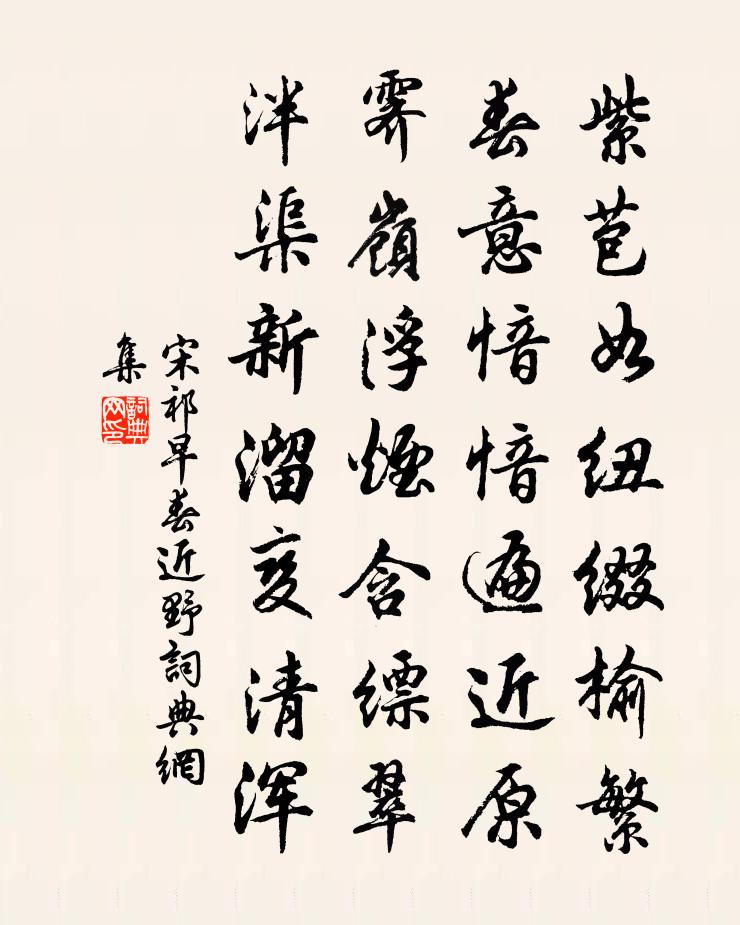 紫苞如紐綴榆繁
春意愔愔遍近原
霽嶺浮煙含縹翠
泮渠新溜变清浑
宋祁早春近野詞典網
集
詞典
网印